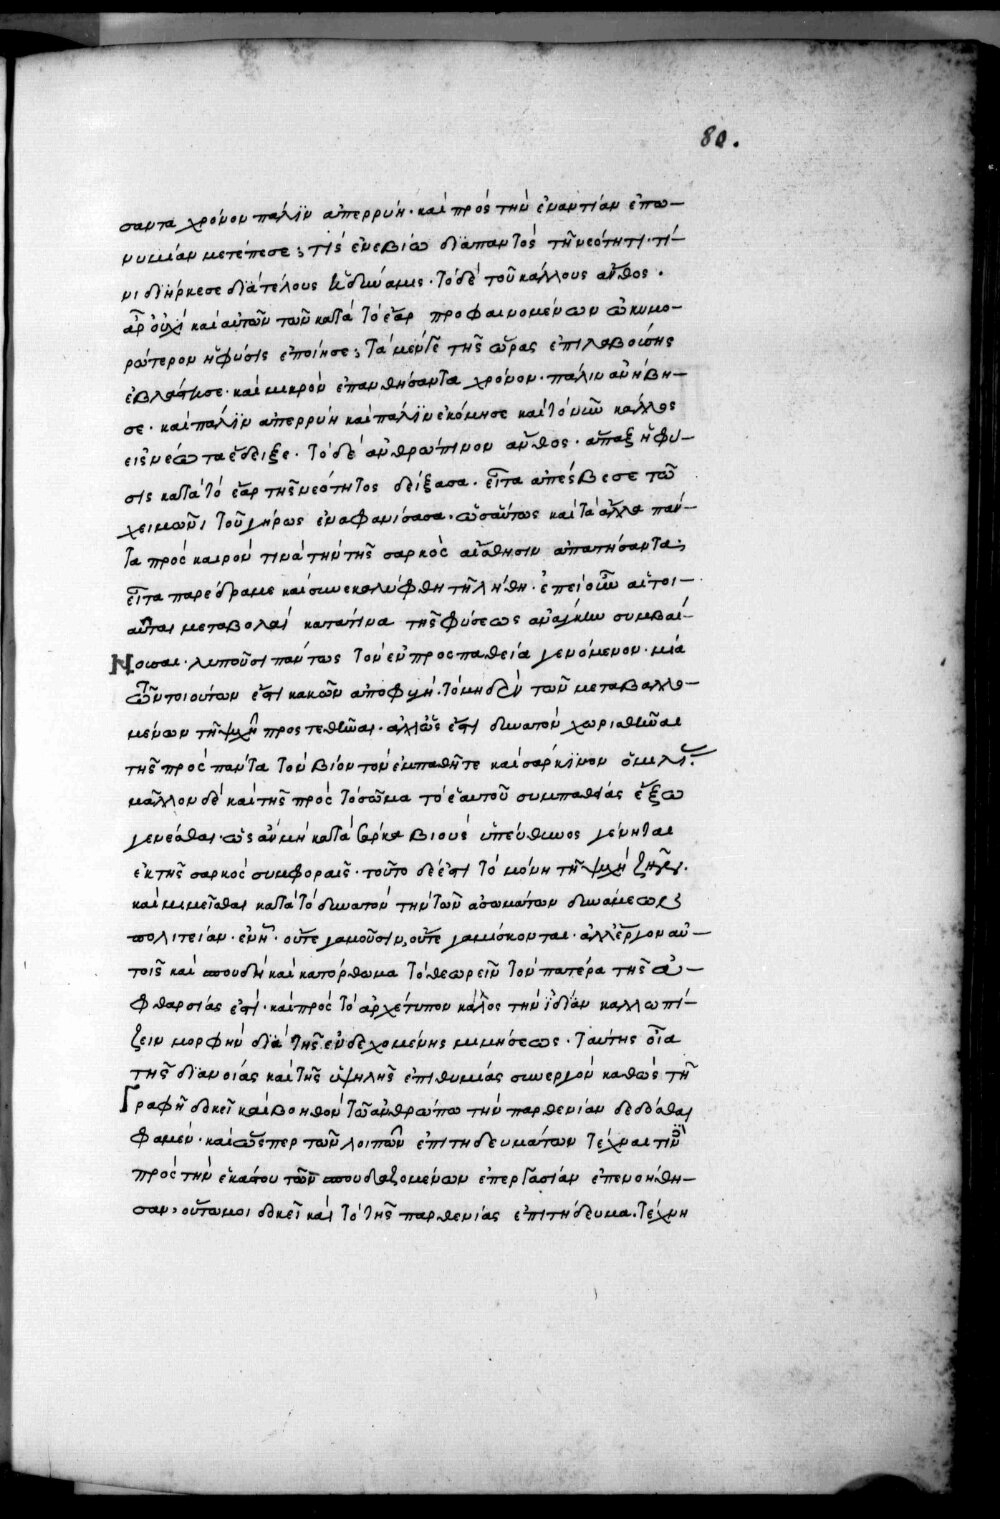 80.
σαντα χρόνον πάλϊν ἀπερρύη· καὶ πρὸς τὴν ἐναντίαν ἐπω–
νυμίαν μετέπεσε; τίς ἐνεβίω διαπαντὸς τῆ νεότητι· τί–
νι διήρκεσε διὰ τέλους ἡ δύναμις· τὸ δὲ τοῦ κάλλους ἄνθος·
ἆρ' οὐχὶ καὶ αὐτῶν τῶν κατὰ τὸ ἔαρ προφαινομένων ὠκυμο–
ρώτερον ἡ φύσις ἐποίησε; τὰ μέν γε τῆς ὥρας ἐπιλαβούσης
ἐβλάστησε· καὶ μικρὸν ἐπανθήσαντα χρόνον· πάλιν ἀνήβη–
σε· καὶ πάλϊν ἀπερρύη καὶ πάλϊν ἐκόμησε καὶ τὸ νῦν κάλλος
εἰς νέωτα ἔδειξε· τὸ δὲ ἀνθρώπινον ἄνθος· ἅπαξ ἡ φύ–
σις κατὰ τὸ ἔαρ τῆς νεότητος δείξασα· εἶτα ἀπέσβεσε τῶ
χειμῶνι τοῦ γήρως ἐναφανίσασα· ὡσαύτως καὶ τὰ ἄλλα πάν–
τα πρὸς καιρόν τινα τὴν τῆς σαρκὸς αἴσθησιν ἀπατήσαντα;
εἶτα παρέδραμε καὶ συνεκαλύφθη τῆ λήθη· ἐπεὶ οὖν αἱ τοι–
αῦται μεταβολαὶ κατά τινα τῆς φύσεως ἀνάγκην συμβαί–
νουσαι· λυποῦσι πάντως τὸν ἐν προσπαθεία γενόμενον· μία
τῶν τοιούτων ἐστὶ κακῶν ἀποφυγὴ· τὸ μηδενὶ τῶν μεταβαλλο–
μένων τῆ ψυχῆ προστεθῆναι· ἀλλ' ὡς ἔστι δυνατὸν χωρισθῆναι
τῆς πρὸς πάντα τὸν βίον τὸν ἐμπαθῆ τε καὶ σάρκϊνον ὁμιλίας·
μᾶλλον δὲ καὶ τῆς πρὸς τὸ σῶμα τὸ ἑαυτοῦ συμπαθείας ἔξω
γενέσθαι· ὡς ἂν μὴ κατὰ σάρκα βιοὺς ὑπεύθυνος γένηται
ἐκ τῆς σαρκὸς συμφοραῖς· τοῦτο δέ ἐστι τὸ μόνη τῆ ψυχῆ ζῆν·
καὶ μιμεῖσθαι κατὰ τὸ δυνατὸν τὴν τῶν ἀσωμάτων δυνάμεων
πολιτείαν· ἐν ἧ· οὔτε γαμοῦσιν, οὔτε γαμίσκονται· ἀλλ' ἔργον αὐ–
τοῖς καὶ σπουδὴ καὶ κατόρθωμα τὸ θεωρεῖν τὸν πατέρα τῆς ἀ–
φθαρσίας ἐστὶ· καὶ πρὸς τὸ ἀρχέτυπον κάλλος τὴν ἰδίαν καλλωπί–
ζειν μορφὴν διὰ τῆς ἐνδεχομένης μιμήσεως· ταύτης οἶα
τῆς διανοίας καὶ τῆς ὑψηλῆς ἐπιθυμίας συνεργὸν καθὼς τῆ
Γραφῆ δοκεῖ καὶ βοηθὸν τῶ ἀνθρώπω τὴν παρθενίαν δεδόσθαι
φαμὲν· καὶ ὥσπερ τῶν λοιπῶν ἐπιτηδευμάτων τέχναι τινὲς
πρὸς τὴν ἑκάστου τῶν σπουδαζομένων ἐπεργασίαν ἐπενοήθη–
σαν, οὕτω μοι δοκεῖ καὶ τὸ τῆς παρθενίας ἐπιτήδευμα· τέχνη